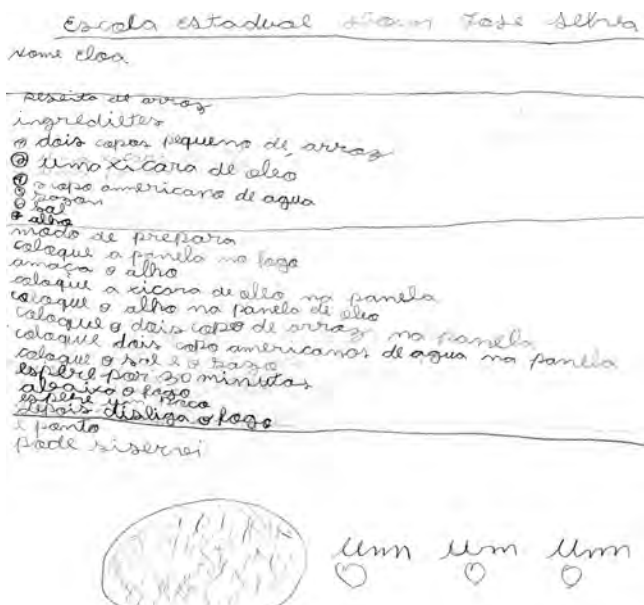 Escola estadual José
nome eloa
reseita de arroz
ingredietes
dois copos pequeno de arroz
uma xicara de oleo
copo americano de agua
sal
alho
modo de prepara
coloque a panela no fogo
amaça o alho
coloque a xicara de oleo na panela
coloque o alho na panela de oleo
coloque o dois copo de arroz na panela
coloque dois copo americanos de agua na panela
coloque o sal e o sazo
espere por 30 minutos
abaixa o fogo
espere um
depois disliga o fogo
e ponto
pode siservi
umm um umm